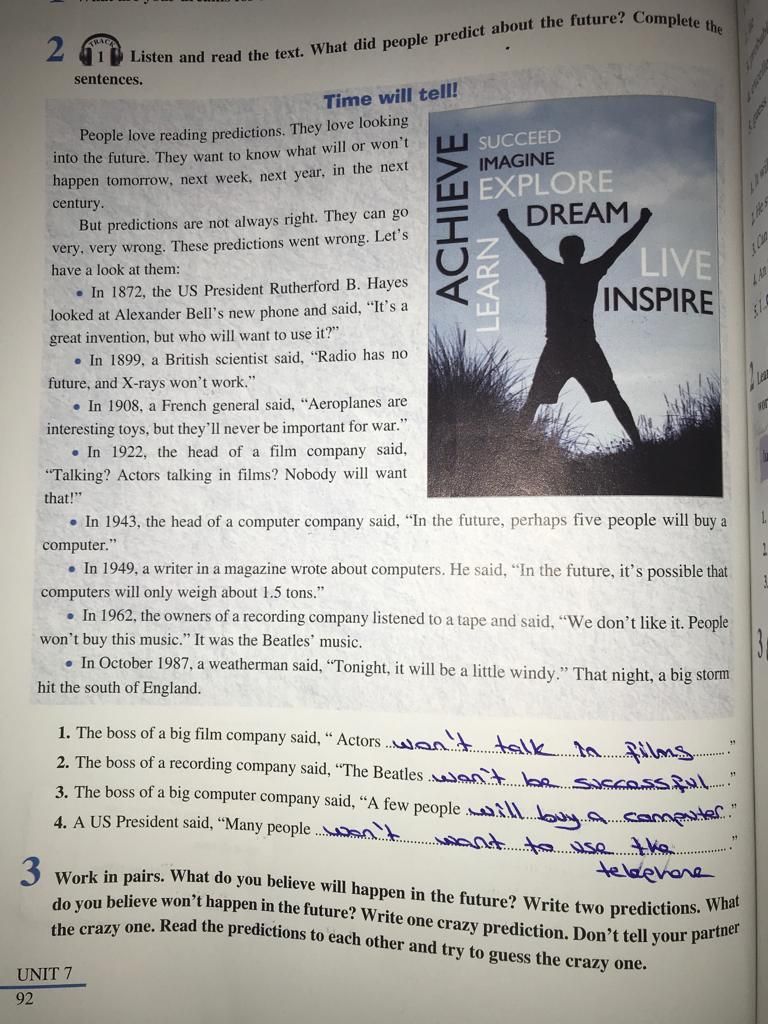 2 TRACK 1 Listen and read the text. What did people predict about the future? Complete the
sentences.
Time will tell!
People love reading predictions. They love looking
into the future. They want to know what will or won't
happen tomorrow, next week, next year, in the next
century.
But predictions are not always right. They can go
very, very wrong. These predictions went wrong. Let's
have a look at them:
• In 1872, the US President Rutherford B. Hayes
looked at Alexander Bell's new phone and said, "It's a
great invention, but who will want to use it?"
• In 1899, a British scientist said, "Radio has no
future, and X-rays won't work."
• In 1908, a French general said, "Aeroplanes are
interesting toys, but they'll never be important for war."
• In 1922, the head of a film company said,
"Talking? Actors talking in films? Nobody will want
that!"
ACHIEVE
LEARN
SUCCEED
IMAGINE
EXPLORE
DREAM
LIVE
INSPIRE
• In 1943, the head of a computer company said, "In the future, perhaps five people will buy a
computer."
• In 1949, a writer in a magazine wrote about computers. He said, "In the future, it's possible that
computers will only weigh about 1.5 tons."
• In 1962, the owners of a recording company listened to a tape and said, "We don't like it. People
won't buy this music." It was the Beatles' music.
• In October 1987, a weatherman said, "Tonight, it will be a little windy." That night, a big storm
hit the south of England.
1. The boss of a big film company said, " Actors won't talk in films."
2. The boss of a recording company said, "The Beatles won't be successful."
3. The boss of a big computer company said, "A few people will buy a computer."
4. A US President said, "Many people won't want to use the"
telephone
3 Work in pairs. What do you believe will happen in the future? Write two predictions. What
do you believe won't happen in the future? Write one crazy prediction. Don't tell your partner
the crazy one. Read the predictions to each other and try to guess the crazy one.
UNIT 7
92